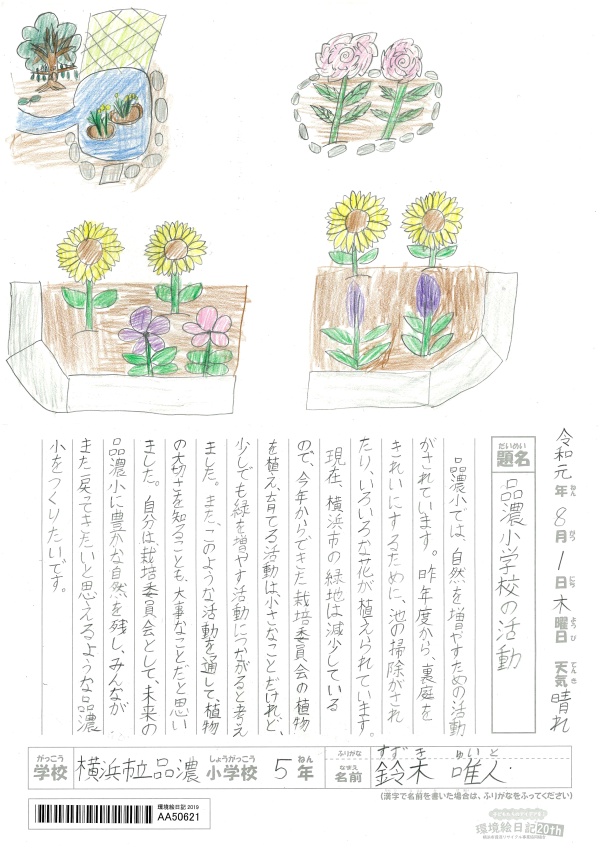 令和元年ねん8月がつ1日にち木曜日ようび 天気てんき 晴れ
だいめい
題名
品濃小学校の活動
品濃小では、自然を増やすための活動
がされています。昨年度から、裏庭を
きれいにするために、池の掃除がされ
たり、いろいろな花が植えられています。
現在、横浜市の緑地は減少している
ので、今年からできた栽培委員会の植物
を植え育てる活動は小さなことだけれど、
少しでも緑を増やす活動につながると考え
ました。またこのような活動を通して、植物
の大切さを知ることも、大事なことだと思い
ました。自分は栽培委員会として、未来の
品濃小に豊かな自然を残し、みんなが
また戻ってきたいと思えるような品濃
小をつくりたいです。
がっこう
学校
横浜市立品濃
しょうがっこう
小学校
5
ねん
年
ふりがな
なまえ
名前
すずき ゆいと
鈴木 唯人
(漢字で名前を書いた場合は、ふりがなをふってください)
環境絵日記2019
AA50621
環境絵日記20th